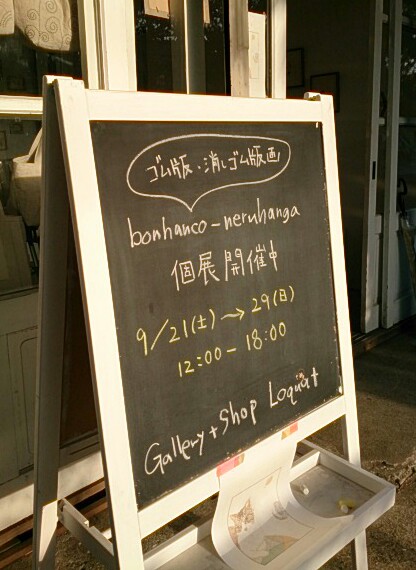 ゴム版・消しゴム版画
bonhanco-neruhanga
個展開催中
9/21(土)→29(日)
12:00-18:00
Gallery+Shop Loquat